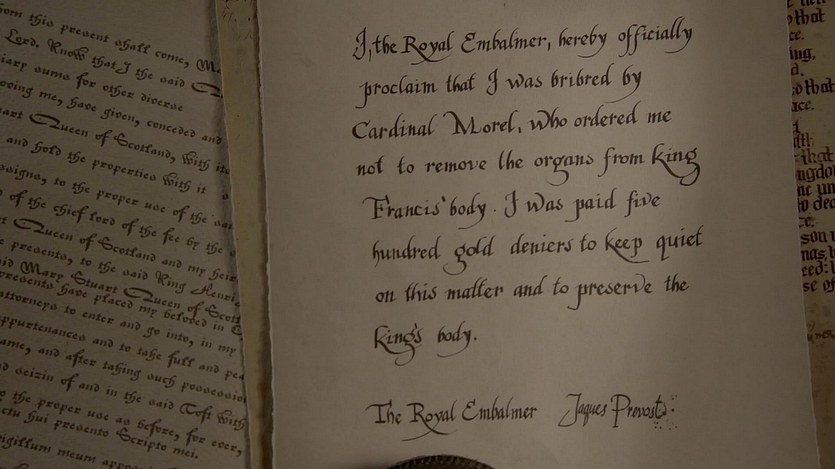 from this present shall come, M
Lord. Know that I the said Q
sums for other diverse
me, have given, conceded and
Queen of Scotland, with its
and hold the properties with it
to the proper use of the
of the chief lord of the fee by the
Queen of Scotland and my heir
presents, to the said King Henrie
Mary Stuart Queen of Scotl
presents have placed my beloved in
attorneys to enter and go into, in my
appurtenances and to take full and
and after taking such possession
seizin of and in the said Toft with
the proper use as before, for ever,
hui presento Scripto mei.
sigillum meum
I, the Royal Embalmer, hereby officially
proclaim that I was bribred by
Cardinal Morel, who ordered me
not to remove the organs from king
Francis' body. I was paid five
hundred gold deniers to keep quiet
on this matter and to preserve the
king's body.
The Royal Embalmer Jaques Prevost
that
ing,
that